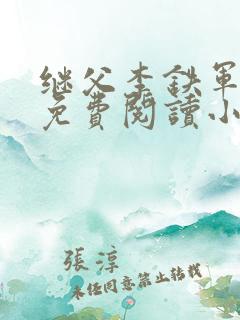 继父李鉄軍
免費閱讀小
張淳
未经同意禁止转载